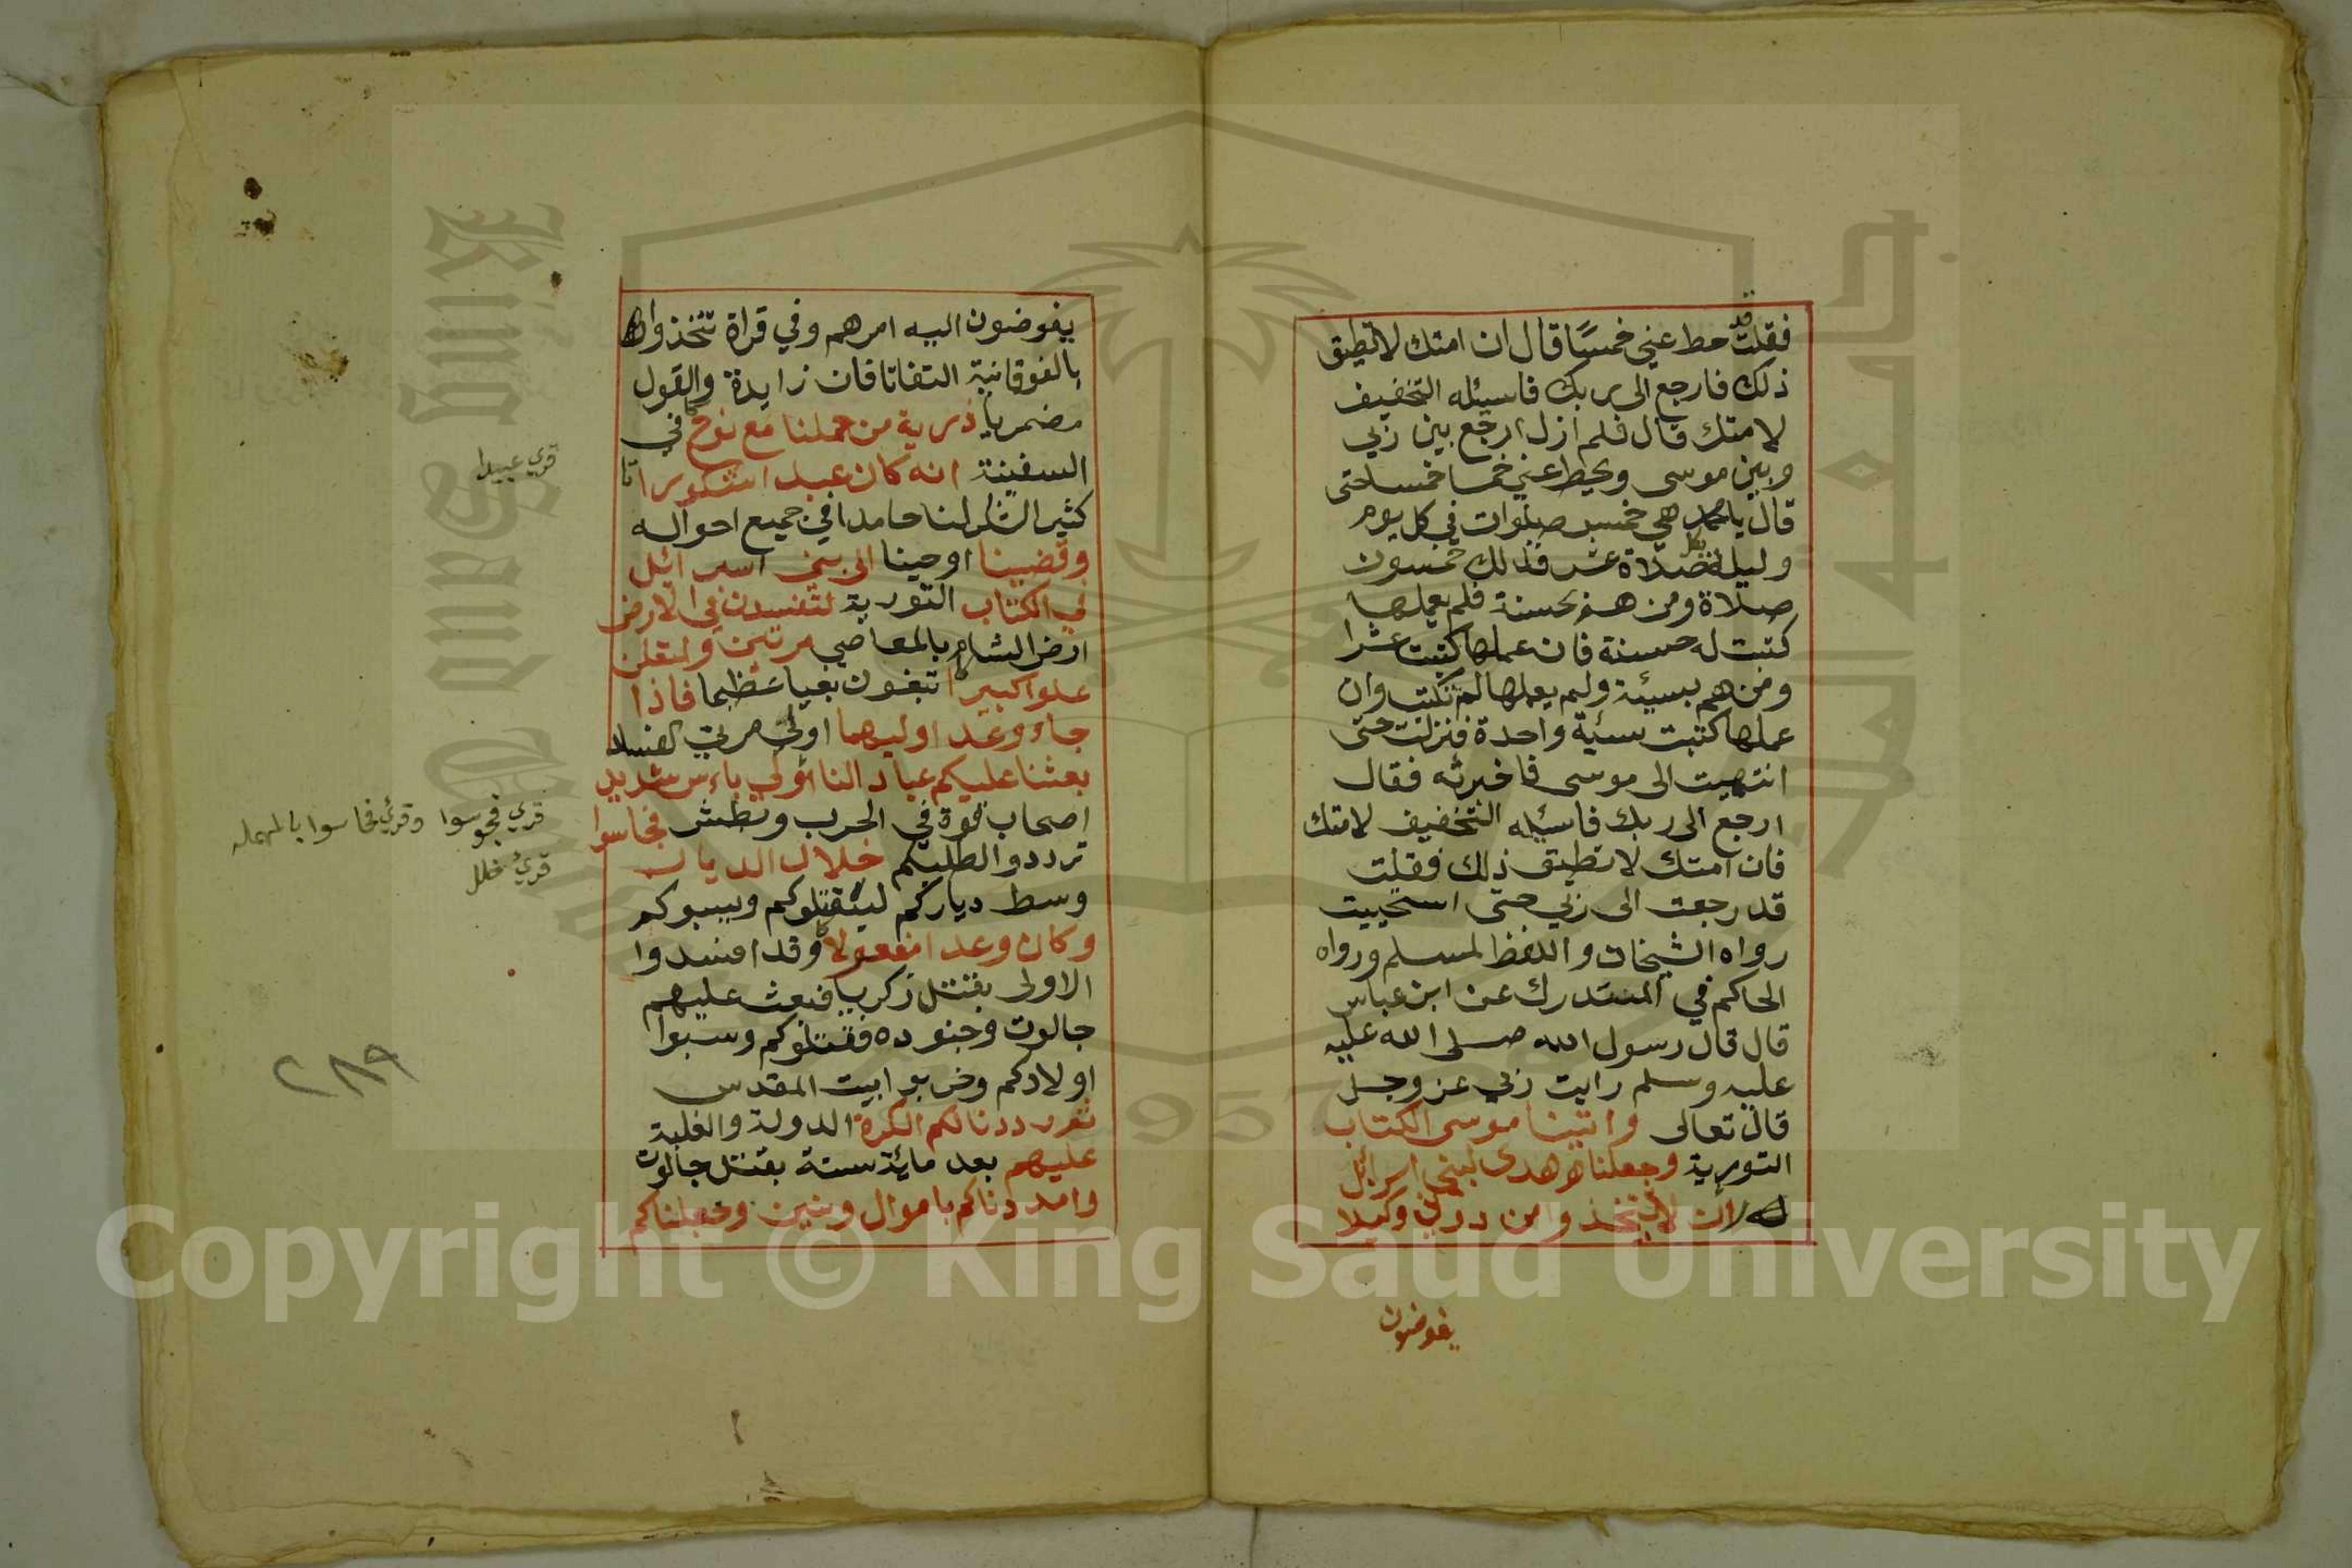 فقلت قد حط عني خمسا قال ان امتك لا تطيق
ذلك فارجع الى ربك فاسئله التخفيف
لامتك قال فلم ازل ارجع بين ربي
وبين موسى ويحط عني خمسا خمسا حتى
قال يا محمد هي خمس صلوات في كل يوم
وليلة بكل صلاة عشر فذلك خمسون
صلاة ومن هم بحسنة فلم يعملها
كتبت له حسنة فان عملها كتبت عشرا
ومن هم بسيئة ولم يعملها لم تكتب وان
عملها كتبت سئية واحدة فنزلت حتى
انتهيت الى موسى فاخبرته فقال
ارجع الى ربك فاسئله التخفيف لامتك
فان امتك لا تطيق ذلك فقلت
قد رجعت الى ربي حتى استحييت
رواه الشيخان واللفظ لمسلم ورواه
الحاكم في المستدرك عن ابن عباس
قال قال رسول الله صلى الله عليه
عليه وسلم رايت ربي عز وجل
قال تعالى واتينا موسى الكتاب
التورية وجعلناه هدى لبني اسرائل
ان لا يتخذوا من دوني وكيلا
يفوضون
يفوضون اليه امرهم وفي قراة تتخذوا
بالفوقانية التفاتا فان زايدة والقول
مضمر يا ذرية من حملنا مع نوح في
السفينة انه كان عبدا شكورا
كثير الشكر لنا حامدا في جميع احواله
وقضينا اوحينا الى بني اسرائل
في الكتاب التورية لتفسدن في الارض
ارض الشام بالمعاصي مرتين ولتعلن
علوا كبيرا تبغون بغيا عظيما فاذا
جاء وعد اوليهما اولى مرتي الفساد
بعثنا عليكم عباد النا اولي باءس شديد
اصحاب قوة في الحرب وبطش فجاسوا
ترددوا لطلبكم خلال الديار
وسط دياركم ليقتلوكم ويسبوكم
وكان وعدا مفعولا وقد افسدوا
الاولى بقتل زكريا فبعث عليهم
جالوت وجنوده فقتلوكم وسبوا
اولادكم وخربوا بيت المقدس
ثم رددنا لكم الكرة الدولة والغلبة
عليهم بعد مائة سنة بقتل جالوت
وامددناكم باموال وبنين وجعلناكم
قري عبيدا
قري فجوسوا وقري فحاسوا بالمهمله
قري خلل
٢٨٩
King Saud University
جامعة الملك سعود
1957
Copyright © King Saud University